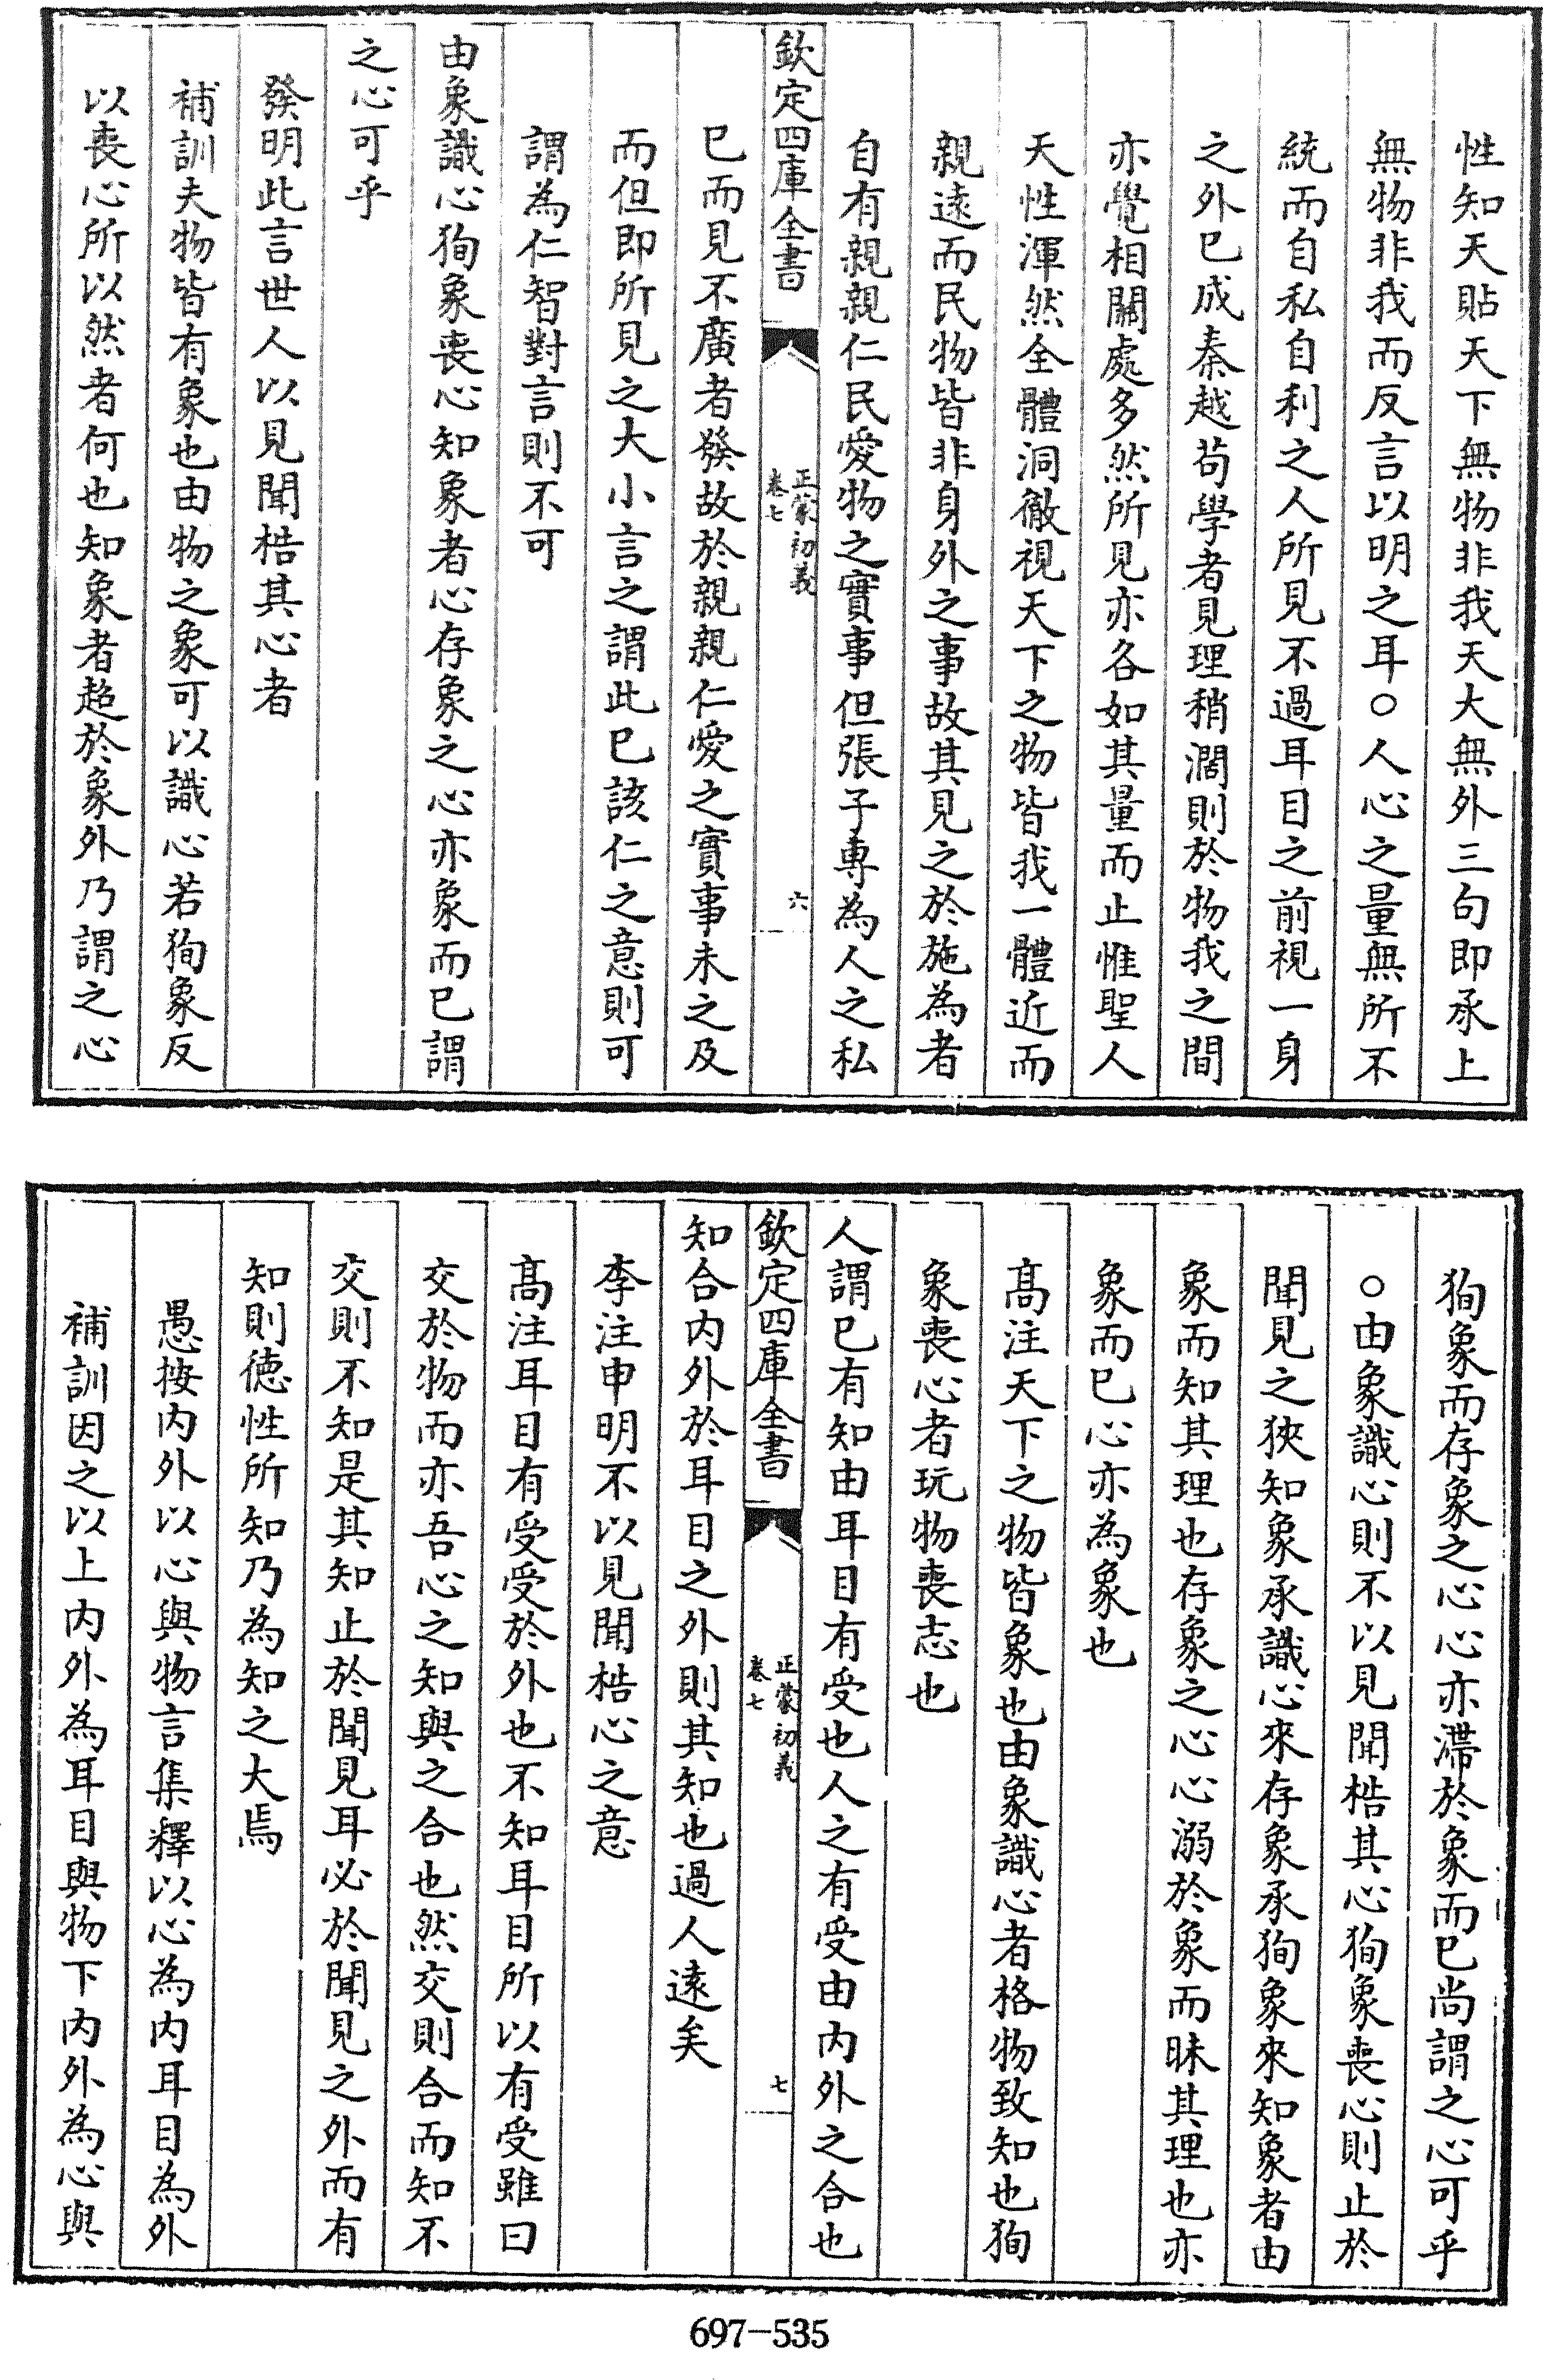 性知天貼天下無物非我天大無外三句即承上
無物非我而反言以明之耳○人心之量無所不
統而自私自利之人所見不過耳目之前視一身
之外已成秦越苟學者見理稍濶則於物我之間
亦覺相關處多然所見亦各如其量而止惟聖人
天性渾然全體洞徹視天下之物皆我一體近而
親遠而民物皆非身外之事故其見之於施為者
自有親親仁民愛物之實事但張子專為人之私
欽定四庫全書
正蒙初義
卷七
六
已而見不廣者發故於親親仁愛之實事未之及
而但即所見之大小言之謂此已該仁之意則可
謂為仁智對言則不可
由象識心狥象喪心知象者心存象之心亦象而已謂
之心可乎
發明此言世人以見聞梏其心者
補訓夫物皆有象也由物之象可以識心若狥象反
以喪心所以然者何也知象者超於象外乃謂之心
狥象而存象之心心亦滯於象而已尚謂之心可乎
○由象識心則不以見聞梏其心狥象喪心則止於
聞見之狹知象承識心來存象承狥象來知象者由
象而知其理也存象之心心溺於象而昧其理也亦
象而已心亦為象也
髙注天下之物皆象也由象識心者格物致知也狥
象喪心者玩物喪志也
人謂已有知由耳目有受也人之有受由內外之合也
欽定四庫全書
正蒙初義
卷七
七
知合內外於耳目之外則其知也過人遠矣
李注申明不以見聞梏心之意
髙注耳目有受受於外也不知耳目所以有受雖曰
交於物而亦吾心之知與之合也然交則合而知不
交則不知是其知止於聞見耳必於聞見之外而有
知則德性所知乃為知之大焉
愚按內外以心與物言集釋以心為內耳目為外
補訓因之以上內外為耳目與物下內外為心與
697-535